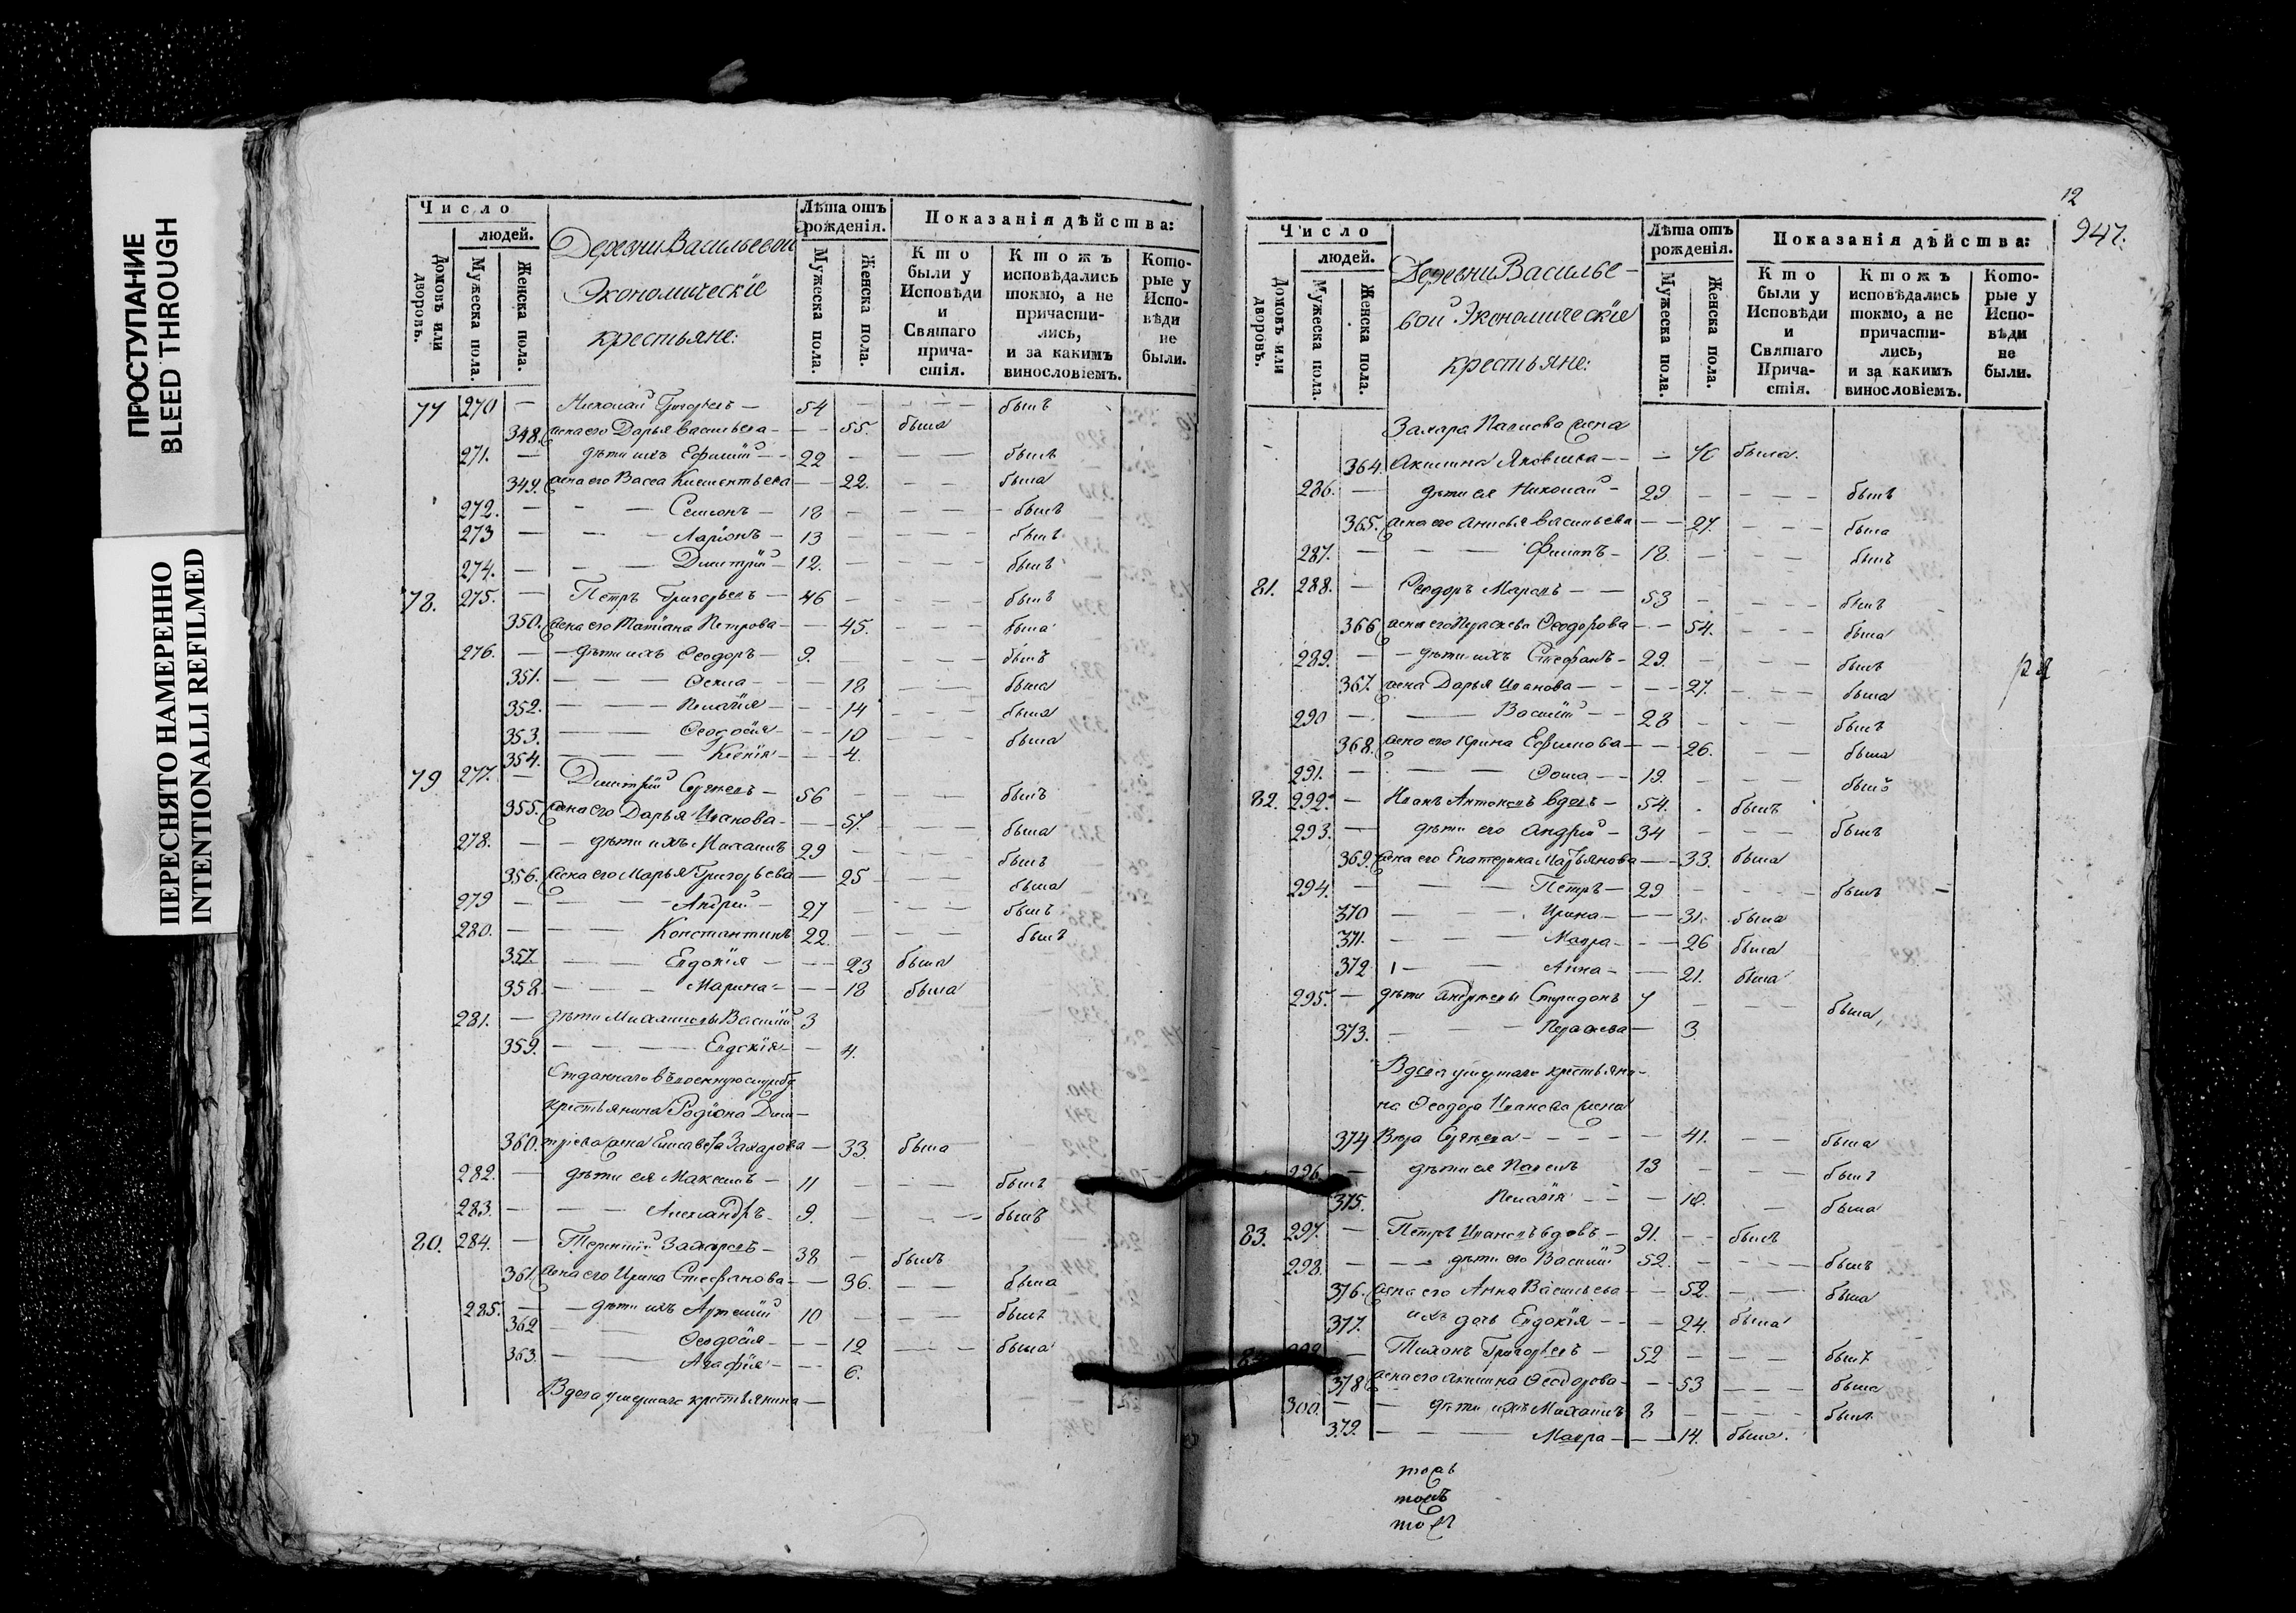 ПРОСТУПАНИЕ
BLEED THROUGH
ПЕРЕСНЯТО НАМЕРЕННО
INTENTIONALLI REFILMED
Число
людей.
Домовъ или дворовъ.
Мужеска пола.
Женска пола.
Деревни Васильевой
Экономическіе
крестьяне:
Лѣта отъ рожденія.
Мужеска пола.
Женска пола.
Показанія дѣйства:
Кто были у Исповѣди и Святаго причастія.
Ктожъ исповѣдались токмо, а не причастились, и за какимъ винословіемъ.
Которые у Исповѣди не были.
77 270 — Николай Григорьевъ — 54 — — — — былъ
348. жена его Дарья Васильева — — 55. была
271. — дѣти ихъ Ефимій — 22 — — — былъ
349. жена его Васса Климентьева — — 22. — — была
272. — — — Семіонъ — 18 — — — былъ
273 — — — Ларіонъ — 13 — — — былъ
274. — — — Димитрій — 12. — — — былъ
78. 275. — Петръ Григорьевъ — 46 — — — былъ
350. жена его Татіана Петрова — — 45. — — была
276. — — дѣти ихъ Ѳеодоръ — 9. — — — былъ
351. — — — Ѳекла — — 18 — — была
352. — — — Пелагія — — 14 — — была
353. — — Ѳеодосія — — 10 — — была
354. — — — Ксенія — — 4.
79 277. — Димитрій Сергеевъ — 56 — — — былъ
355. жена его Дарья Иванова — — 57. — — была
278. — — дѣти ихъ Михаилъ 29 — — — былъ
356. жена его Марья Григорьева — 25 — — была
279 — — — Андрей — 27 — — — былъ
280. — — — Константинъ 22. — — — былъ
357. — — Евдокія — — 23 была
358. — — — Марина — — 18 была
281. — дѣти Михаиловы Василій 3
359. — — — Евдокія — — 4.
Отданнаго въ военную службу
крестьянина Родіона Дими-
360. тріева жена Елисавета Захарова — 33. была
282. — дѣти ея Максимъ — 11 — — — былъ
283. — — — Александръ — 9. — — — былъ
80. 284. — Терентій Захаровъ — 38 — былъ
361. жена его Ирина Стефанова — — 36. — — была
285. — — дѣти ихъ Артемій 10 — — — былъ
362 — — Ѳеодосія — — 12 — — была
363. — — Агафія — — 6.
Вдова умершаго крестьянина —
12
947.
Число
людей.
Домовъ или дворовъ.
Мужеска пола.
Женска пола.
Деревни Василье-
вой Экономическіе
крестьяне:
Лѣта отъ рожденія.
Мужеска пола.
Женска пола.
Показанія дѣйства:
Кто были у Исповѣди и Святаго Причастія.
Ктожъ исповѣдались токмо, а не причастились, и за какимъ винословіемъ.
Которые у Исповѣди не были.
Захара Павлова жена
364. Акилина Яковлева — — 70 была.
286. — дѣти ея Николай — 29 — — — былъ
365. жена его Анисья Васильева — — 27. — — была
287. — — — Филипъ — 18. — — — былъ
81. 288. — Ѳеодоръ Марковъ — — 53 — — — былъ
366 жена его Параскева Ѳеодорова — — 54. — — была
289. — — дѣти ихъ Стефанъ — 29. — — — былъ
367. жена Дарья Иванова — — — 27. — — была
290 — — Василій — — 28 — — — былъ
368. жена его Ирина Ефимова — — 26. — — была
291. — — — Ѳома — — 19. — — — былъ
82. 292. — Иванъ Антоновъ вдовъ — 54. былъ
293. — дѣти его Андрей — 34 — — — былъ
369. жена его Екатерина Марьянова — — 33. была
294. — — — Петръ — 29 — — — былъ —
370 — — Ирина — — 31. была
371. — — — Мавра — — 26 была
372 — — Анна — — 21. была
295. — дѣти Андреевы Спиридонъ 7 — — — была,
373. — — — Параскева — 3.
Вдова умершаго крестьяни-
на Ѳеодора Иванова жена
374 Вѣра Сергеева — — — — 41. — — была
296. — дѣти ея Павелъ 13 — — — былъ
375. Пелагія — — — 18. — была
83. 297. — Петръ Ивановъ вдовъ — 91. — — былъ
298. — — — дѣти его Василій 52. — — — былъ
376. жена его Анна Васильева — — 52. — — была
377. ихъ дочь Евдокія — — — 24. была
— Тихонъ Григорьевъ — 52 — — — былъ
378 жена его Акилина Ѳеодорова — — 53 — — — была
300. — — дѣти ихъ Михаилъ 8 — — — былъ
379. — — — Мавра — — — 14. была.